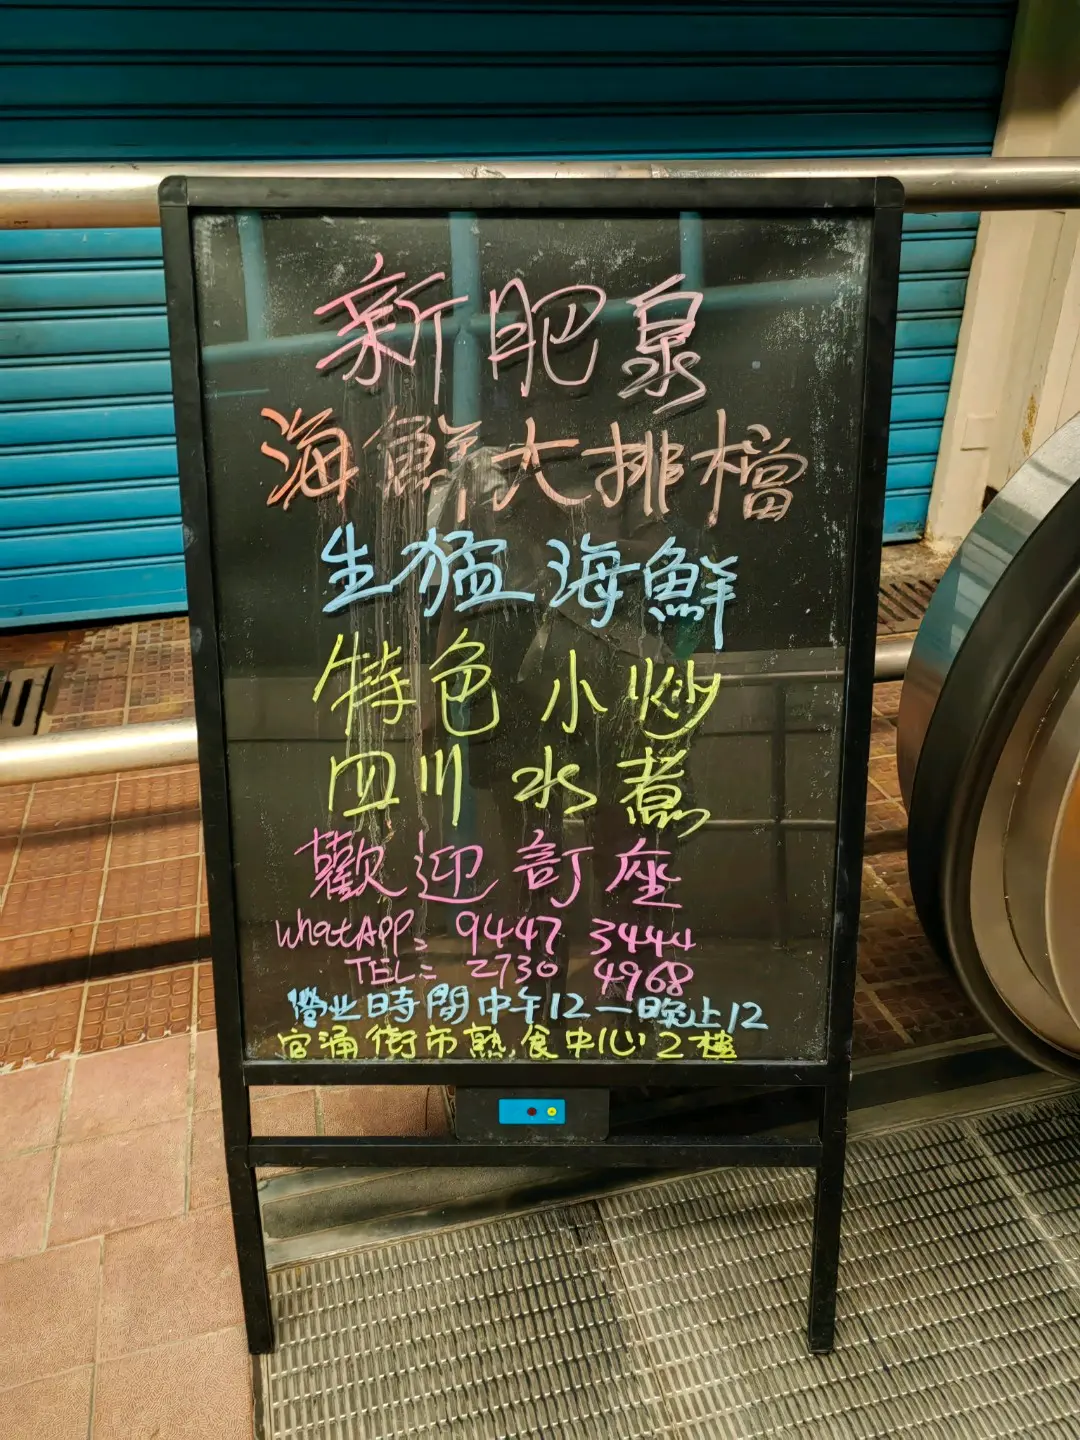 新肥泉
海鮮大排檔
生猛海鮮
特色小炒
四川水煮
歡迎訂座
WhatAPP: 9447 3444
TEL: 2730 4968
營业時間中午12一晚上12
官涌街市熟食中心2樓